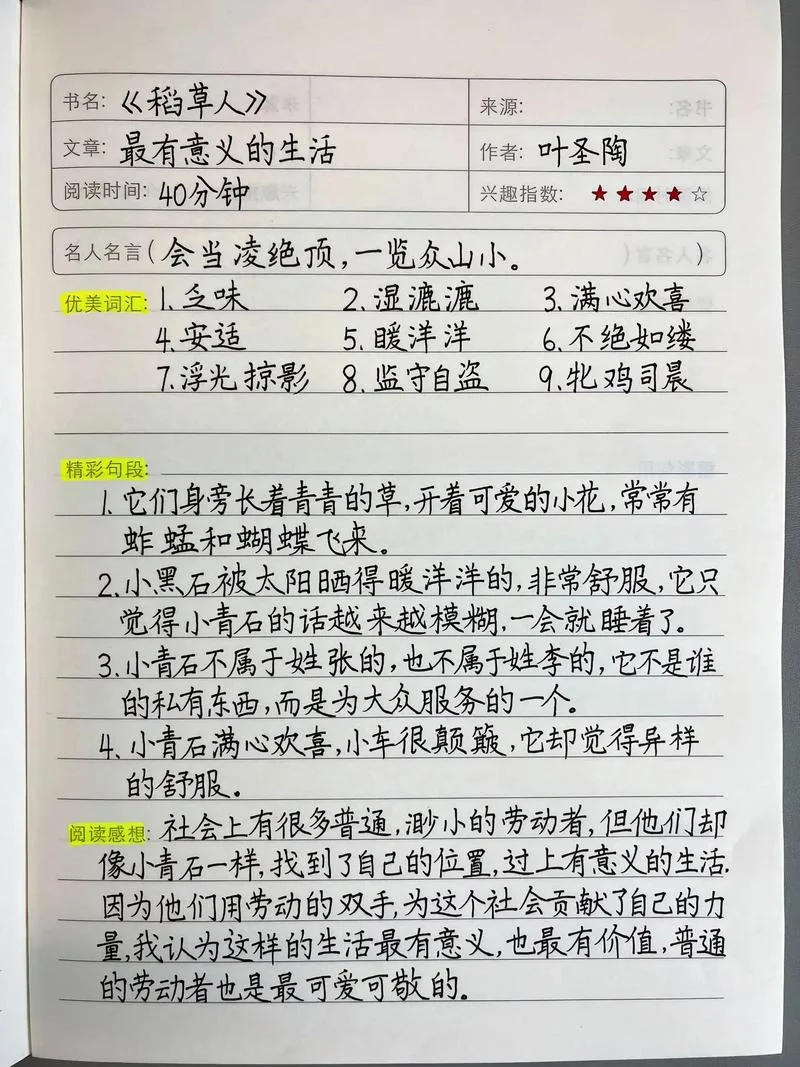 书名：《稻草人》 来源：
文章：最有意义的生活 作者：叶圣陶
阅读时间：40分钟 兴趣指数：★★★★☆
名人名言（会当凌绝顶，一览众山小。）
优美词汇：1、乏味 2、湿漉漉 3、满心欢喜
4、安适 5、暖洋洋 6、不绝如缕
7、浮光掠影 8、监守自盗 9、牝鸡司晨
精彩句段：
1、它们身旁长着青青的草，开着可爱的小花，常常有
蚱蜢和蝴蝶飞来。
2、小黑石被太阳晒得暖洋洋的，非常舒服，它只
觉得小青石的话越来越模糊，一会就睡着了。
3、小青石不属于姓张的，也不属于姓李的，它不是谁
的私有东西，而是为大众服务的一个。
4、小青石满心欢喜，小车很颠簸，它却觉得异样
的舒服。
阅读感想：社会上有很多普通，渺小的劳动者，但他们却
像小青石一样，找到了自己的位置，过上有意义的生活.
因为他们用劳动的双手，为这个社会贡献了自己的力
量，我认为这样的生活最有意义，也最有价值，普通
的劳动者也是最可爱可敬的。